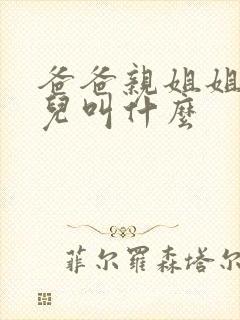 爸爸親姐姐
兒叫什麼
菲尔羅森塔尔